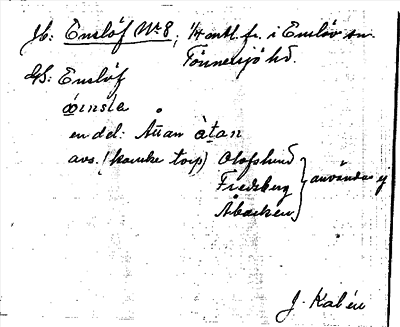 Jb: Enslöf Nr 8, 1/4 mtl. fr. i Enslöv sn.
Tönnersjö hd.
GS: Enslöf
œ̀nsla
en del: Åttan àtan
avs. (kanske torp) Olofslund
Fredsberg
Åbacken
användas ej
J. Kalén